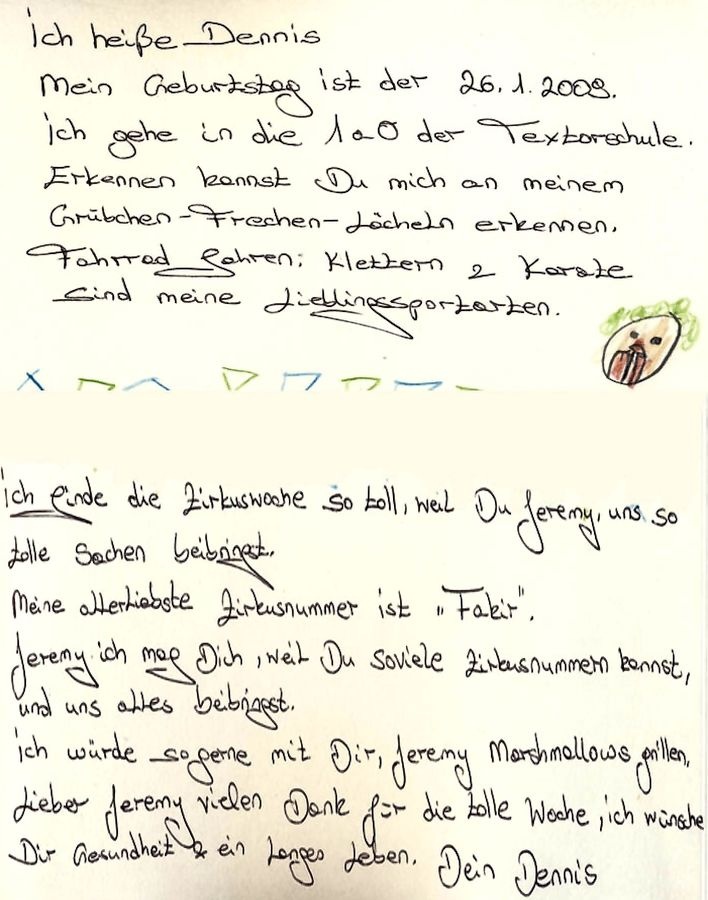 Ich heiße Dennis
Mein Geburtstag ist der 26.1.2009.
Ich gehe in die 1a0 der Textorschule.
Erkennen kannst Du mich an meinem
Grübchen-Frechen-Lächeln erkennen.
Fahrrad fahren; Klettern & Karate
Sind meine Lieblingssportarten.
Ich finde die Zirkuswoche so toll, weil Du Jeremy, uns so
tolle Sachen beibringst.
Meine allerliebste Zirkusnummer ist "Fakir".
Jeremy ich mag Dich, weil Du soviele Zirkusnummern kannst,
und uns alles beibringst.
Ich würde so gerne mit Dir, Jeremy Marshmallows grillen,
Lieber Jeremy vielen Dank für die tolle Woche, ich wünsche
Dir Gesundheit & ein Langes Leben. Dein Dennis